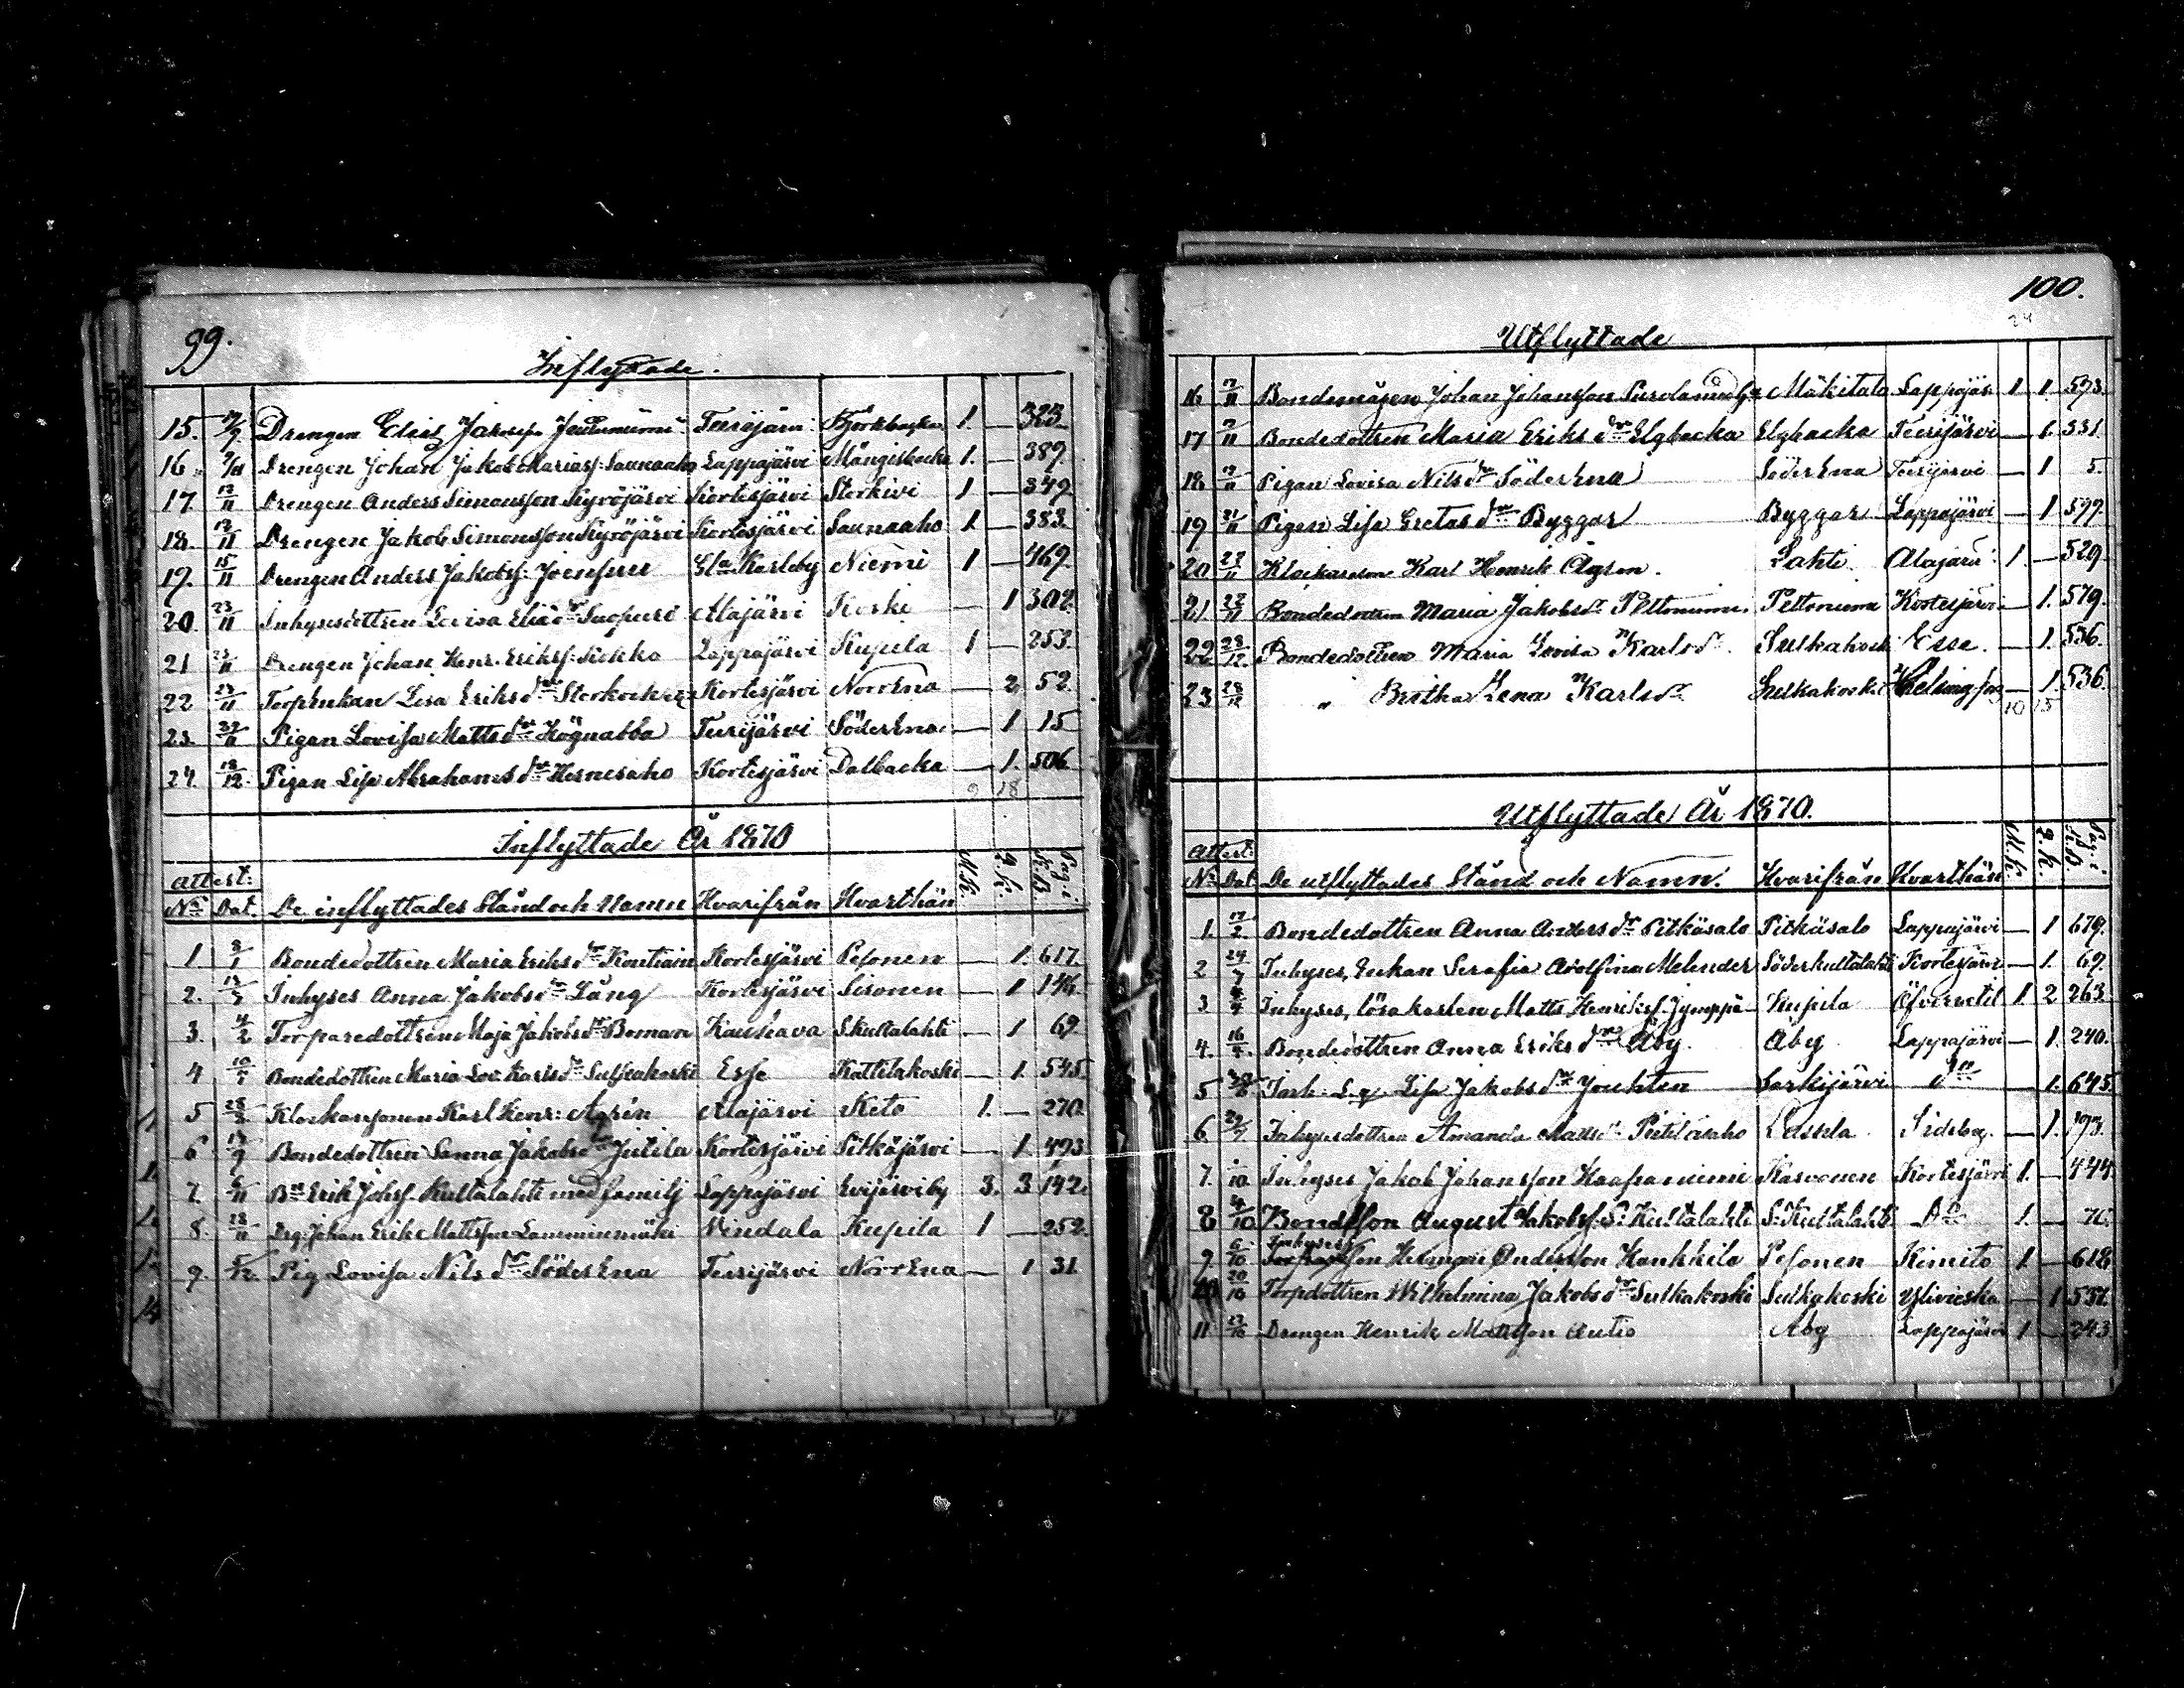 99.
Inflyttade.
15. 7/9. Drengen Elias Jakobsf. Teirijärvi Björkbacka 1. — 323
16 Drengen Johan Jakob Mariasf. Saunaaho Lappajärvi Mångsbacka 1. — 389.
17. 12/11 Drengen Anders Simonsson Kyröjärvi Kortesjärvi Storkivi 1 — 349
18. 12/11 Drengen Jakob Simonsson Kyröjärvi Kortesjärvi Saunaaho 1. — 383.
19. 15/11 Drengen Anders Jakobsf. Joensuu Gla Karleby Niemi 1 — 469.
20. 23/11 Inhysesdottren Lovisa Eliædr Alajärvi Koski — 1 302.
21 23/11 Drengen Johan Henr. Eriksf. Kokko Lappajärvi Kupila 1 — 253.
22 23/11 Lisa Eriksdr Kortesjärvi NorrEna — 2 52.
23. 27/11 Pigan Lovisa Mattsdr Högnabba Teirijärvi SöderEna — 1 15
24. 18/12. Pigan Lisa Abrahamsdr Hernesaho Kortesjärvi Dalbacka — 1. 506
9 18
Inflyttade År 1870
Attest:
No Dat. De inflyttades Stånd och Namn Hvarifrån Hvarthän M.K. Q.K. Pag. i K.B.
1 3/1 Bondedottren Maria Eriksdr Kontiain Kortesjärvi Pesonen — 1. 617.
2. Inhyses Anna Jakobsdr Lång Kortesjärvi Sisonen — 1 146.
3. 4/2 Torparedottren Maja Jakobsdr Boman Kauhava S.Kultalahti — 1 69
4 Bondedottren Maria Lov. Karlsdr Sulkakoski Esse Kattilakoski — 1. 545.
5 Klockarsonen Karl Henr: Agrén Alajärvi Keto 1. — 270
6 Bondedottren Sanna Jakobsdr Jutila Kortesjärvi Pitkäjärvi — 1. 493
7. 6/11 Bn Erik Johsf. Kultalahti med familj Lappajärvi Evijärviby 3. 3 142.
8. 28/11 Drg. Johan Erik Mattsson Lamminmäki Vindala Kupila 1 — 252.
9. 5/12. Pig Lovisa Nilsdr SöderEna Terijärvi NorrEna — 1 31.
100.
24
Utflyttade
16 12/11 Johan Johansson Mäkitalo Lappajär 1 1. 573.
17 Bondedottren Maria Eriksdr Elgbacka Elgbacka Teirijärvi — 1. 331.
18 12/11 Pigan Lovisa Nilsdr SöderEna SöderEna Teirijärvi — 1 5.
19 21/11 Pigan Lisa Gretasdr Byggar Byggar Lappajärvi — 1 599.
20 Klockarson Karl Henrik Ågren. Lahti. Alajärvi 1. — 529.
21 Bondedottren Maria Jakobsdr Peltoniemi Peltoniemi Kortesjärvi — 1. 579.
22 28/12 Bondedottren Maria Lovisa Karlsdr. Sulkakoski Esse. — 1. 536.
23 28/12 „ Britha Lena Karlsdr Sulkakoski Helsingfors — 1. 536.
10 15
Utflyttade År 1870.
Attest:
No Dat De utflyttades Stånd och Namn. Hvarifrån Hvarthän M.K. Q.K. Pag. i K.B.
1. 17/2. Bondedottren Anna Andersdr Pitkäsalo Pitkäsalo Lappajärvi — 1 679.
2 Inhyses, Enkan Serafia Adolfina Melender Söderkultalahti Kortesjärvi — 1. 69.
3 Inhyses, lösakarlen Matts Henriksf. Jymppä Kupila Öfvervetil 1. 2 263.
4. 16/4. Bondedottren Anna Eriksdr Åby. Åby Lappajärvi — 1. 240.
5 Lisa Jakobsdr Jouhten Sarkijärvi do — 1. 645.
6. 29/7 Inhysesdottren Amanda Mattsdr Pitkäaho Laskla Sideby. — 1. 193.
7. Inhyses Jakob Johansson Haapaniemi Kasvonen Kortesjärvi 1. — 444
8 4/10 Bondesson August Jakobsf. S. Kultalahti S. Kultalahti Do 1. — 76.
9 6/10 Inhyses Herman Andersson Hankkila Pesonen Kimito 1. — 618
10 20/10 Torpdottren Wilhelmina Jakobsdr Sulkakoski Sulkakoski Ylivieska — 1 537.
11 Drengen Henrik Mattsson Autio Åby Lappajärvi 1 — 243